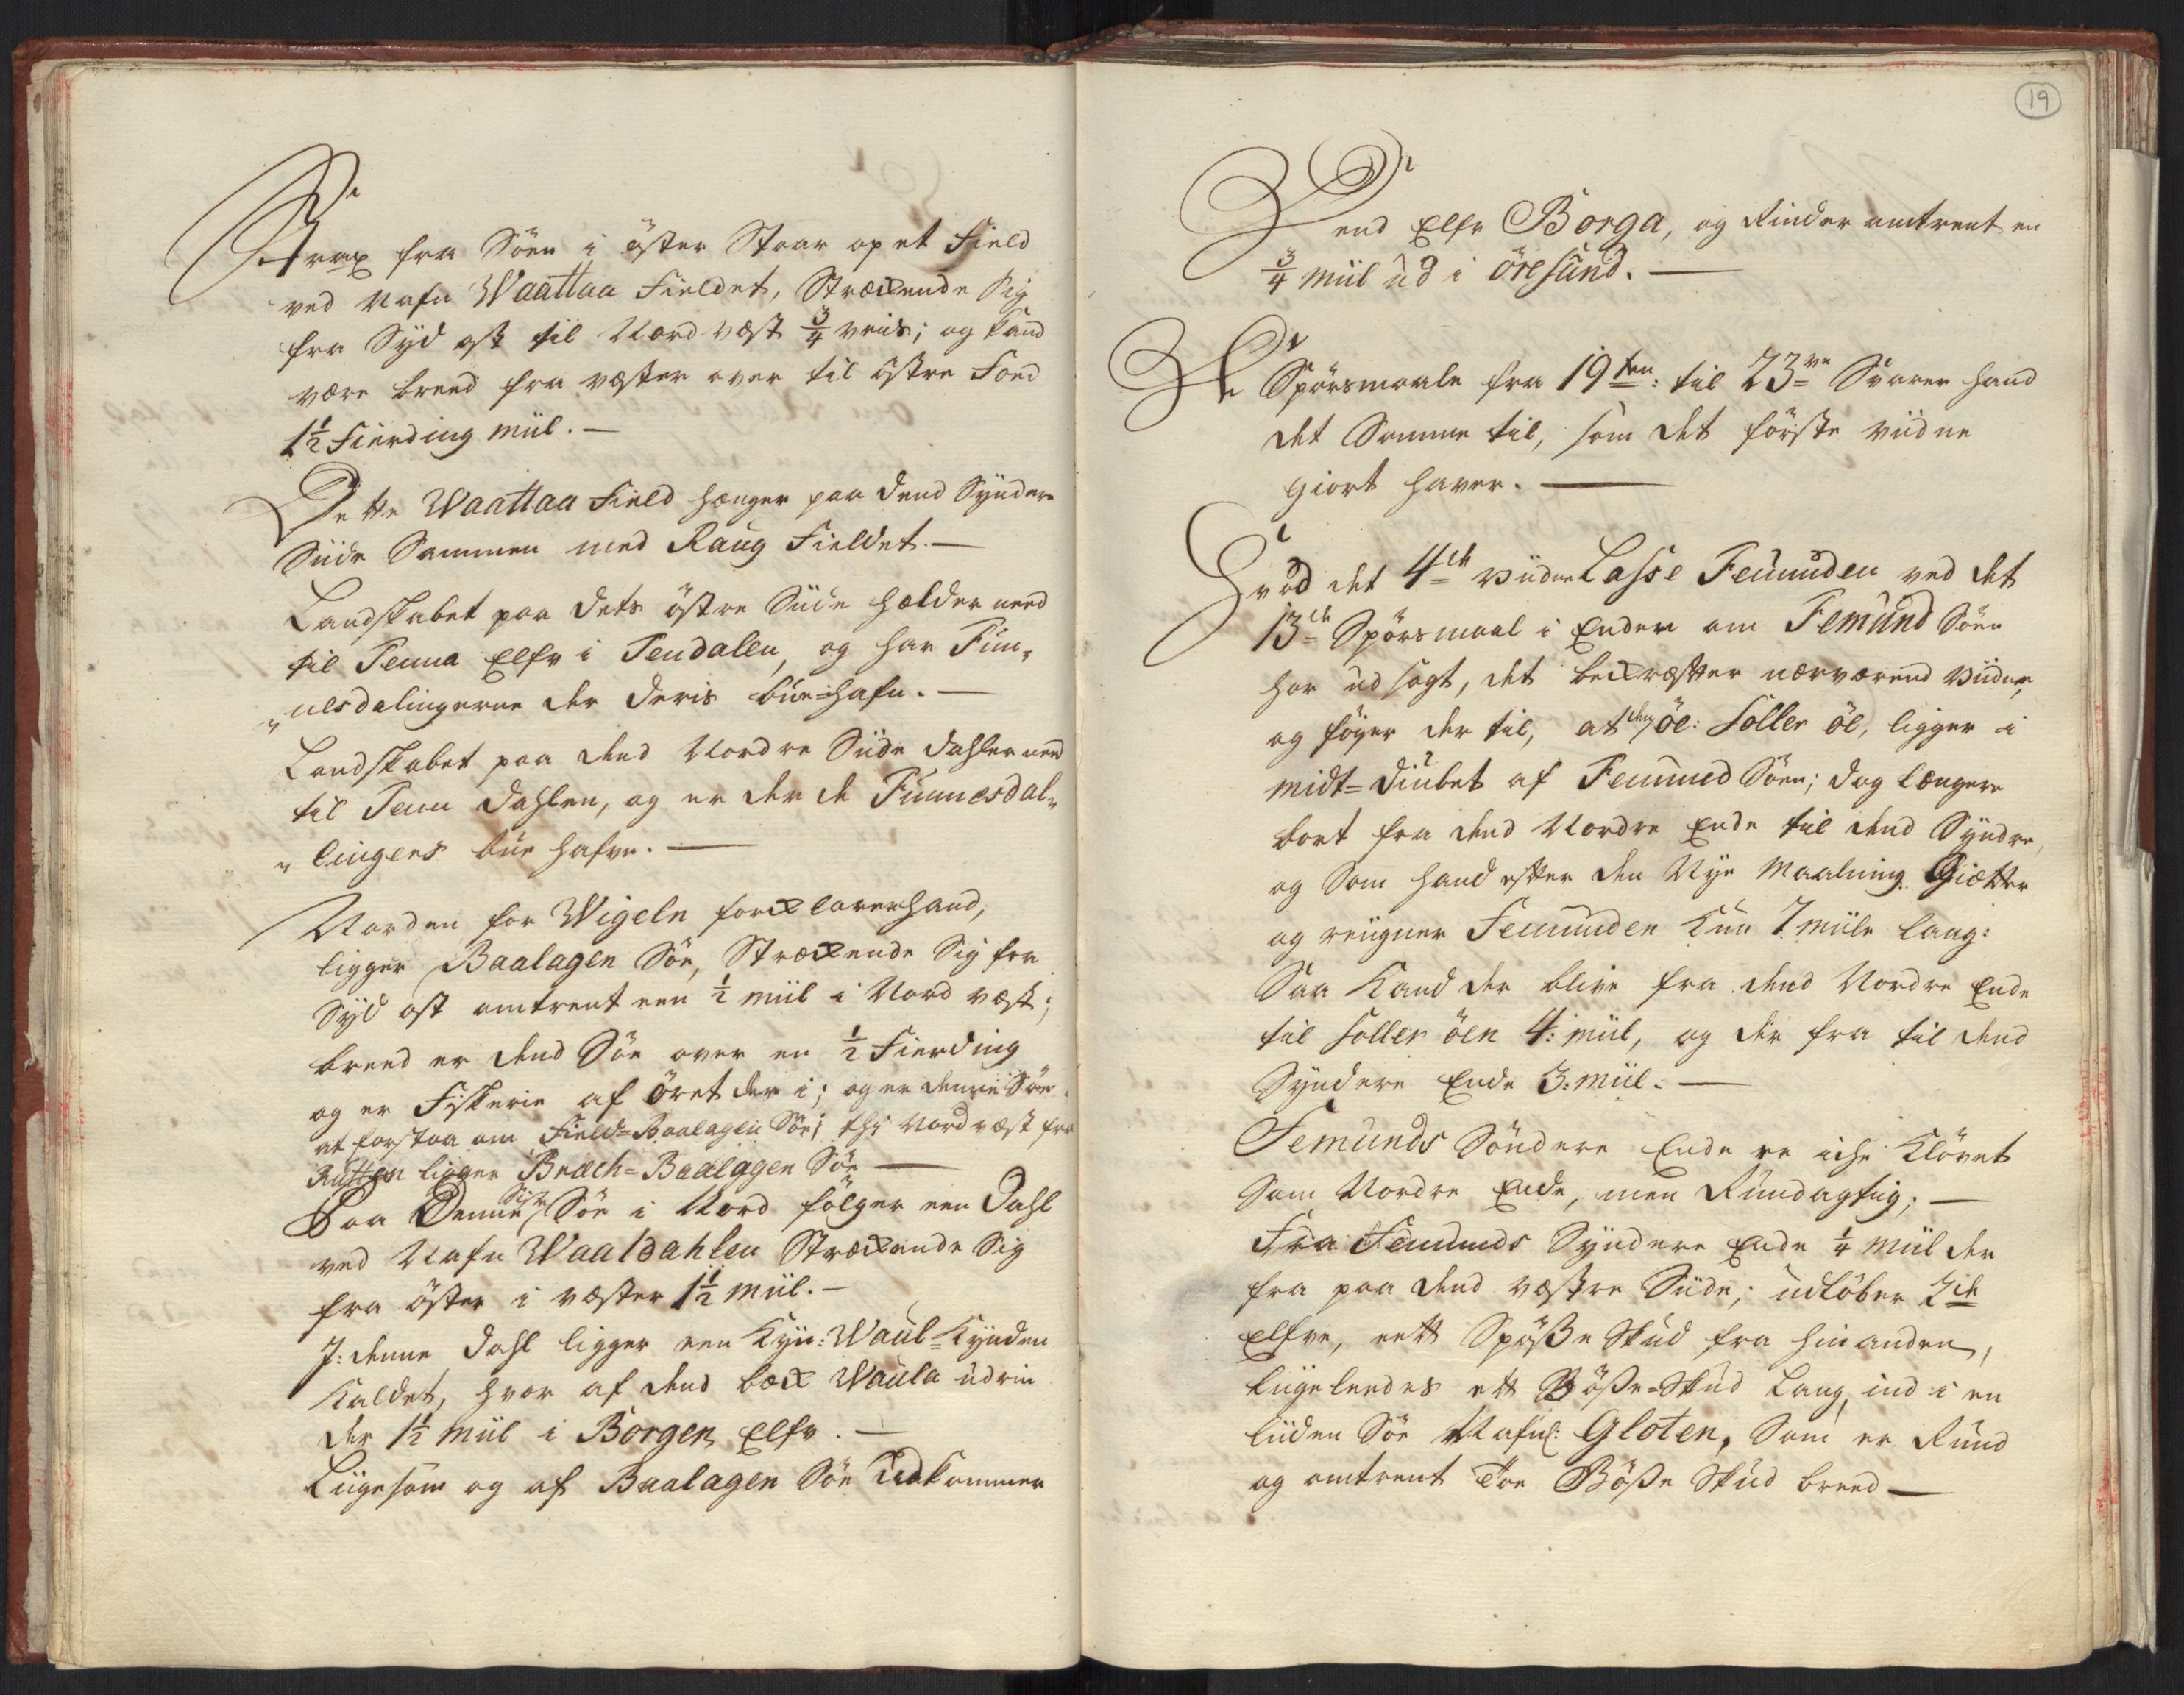 Strax fra Söen i öster Staar op et Field
ved Nafn Waattaa Fieldet, Strækende Sig
fra Syd ost til Nord west 3/4 veis; og kand
være breed fra væster over til östre Foed
1 1/2 Fierding miil. —
Dette Waattaa Field hænger paa dend Syndere
Siide Sammen med Raug Fieldet. —
Landskabet paa dets östre Siide helder need
til Tenna Elfv i Tendalen, og har Fün„
„nesdalingerne der deris büe-hafn. —
Landskabet paa dend Nordre Siide dahler need
til Tenn dahlen, og er der de Funnesdal„
„lingers büe hafne. —
Norden for Wigeln forklarer hand,
ligger Baalagen Söe, Strækende Sig fra
Syd ost omtrent een 1/2 miil i Nord væst;
breed er dend Söe over en 1/2 Fierding
og er Fiskerie af öret der i; og er denne Söe
at forstaa om Field-Baalagen Söe; thi Nordvæst fra
Rutten ligger Bræch-Baalagen Söe —
Paa Denne Siste Söe i Nord fölger een Dahl
ved Nafn Waaldahlen Strækende Sig
fra öster i væster 1 1/2 miil. —
I: denne Dahl ligger een Kyn: Waul-Kynden
Kaldet, hvor af dend bæk Waula udrin
der 1 1/2 miil i Borgen Elfv. —
Liigesom og af Baalagen Söe udkommer
19
Dend Elfv Borga, og Rinder omtrent en
3/4 miil ud i öresund. —
De Spörsmaale fra 19ten: til 23de Svarer hand
det Samme til, som det förste viidne
giort haver. —
Hvad det 4de viidne Lasse Femunden ved det
13de Spörsmaal i Enden om Femund Söen
har udsagt, det bekræfter nærværend viidne,
og föyer der til, at den öe: Soller öe, ligger i
midt-diübet af Femund Söen; dog længere
bort fra dend Nordre Ende til dend Syndre,
og Som hand efter den Nye Maalning Giætter
og reigner Femunden kun 7 miile lang:
Saa Kand der blive fra dend Nordre Ende
til Soller öen 4: miil, og der fra til dend
Syndere Ende 3: miil. —
Femunds Söndere Ende er iche Klövet
Som Nordre Ende, men Rundagtig; —
Fra Femunds Syndere Ende 1/4 miil der
fra paa dend væstre Siide; udlöber 2de
Elfve, eett Bösse Skud fra hinanden,
liigeleedes ett Bösse-Skud lang, ind i en
liiden Söe Nafnl: Gloten, Som er Rund
og omtrent Toe Bösse Skud breed —